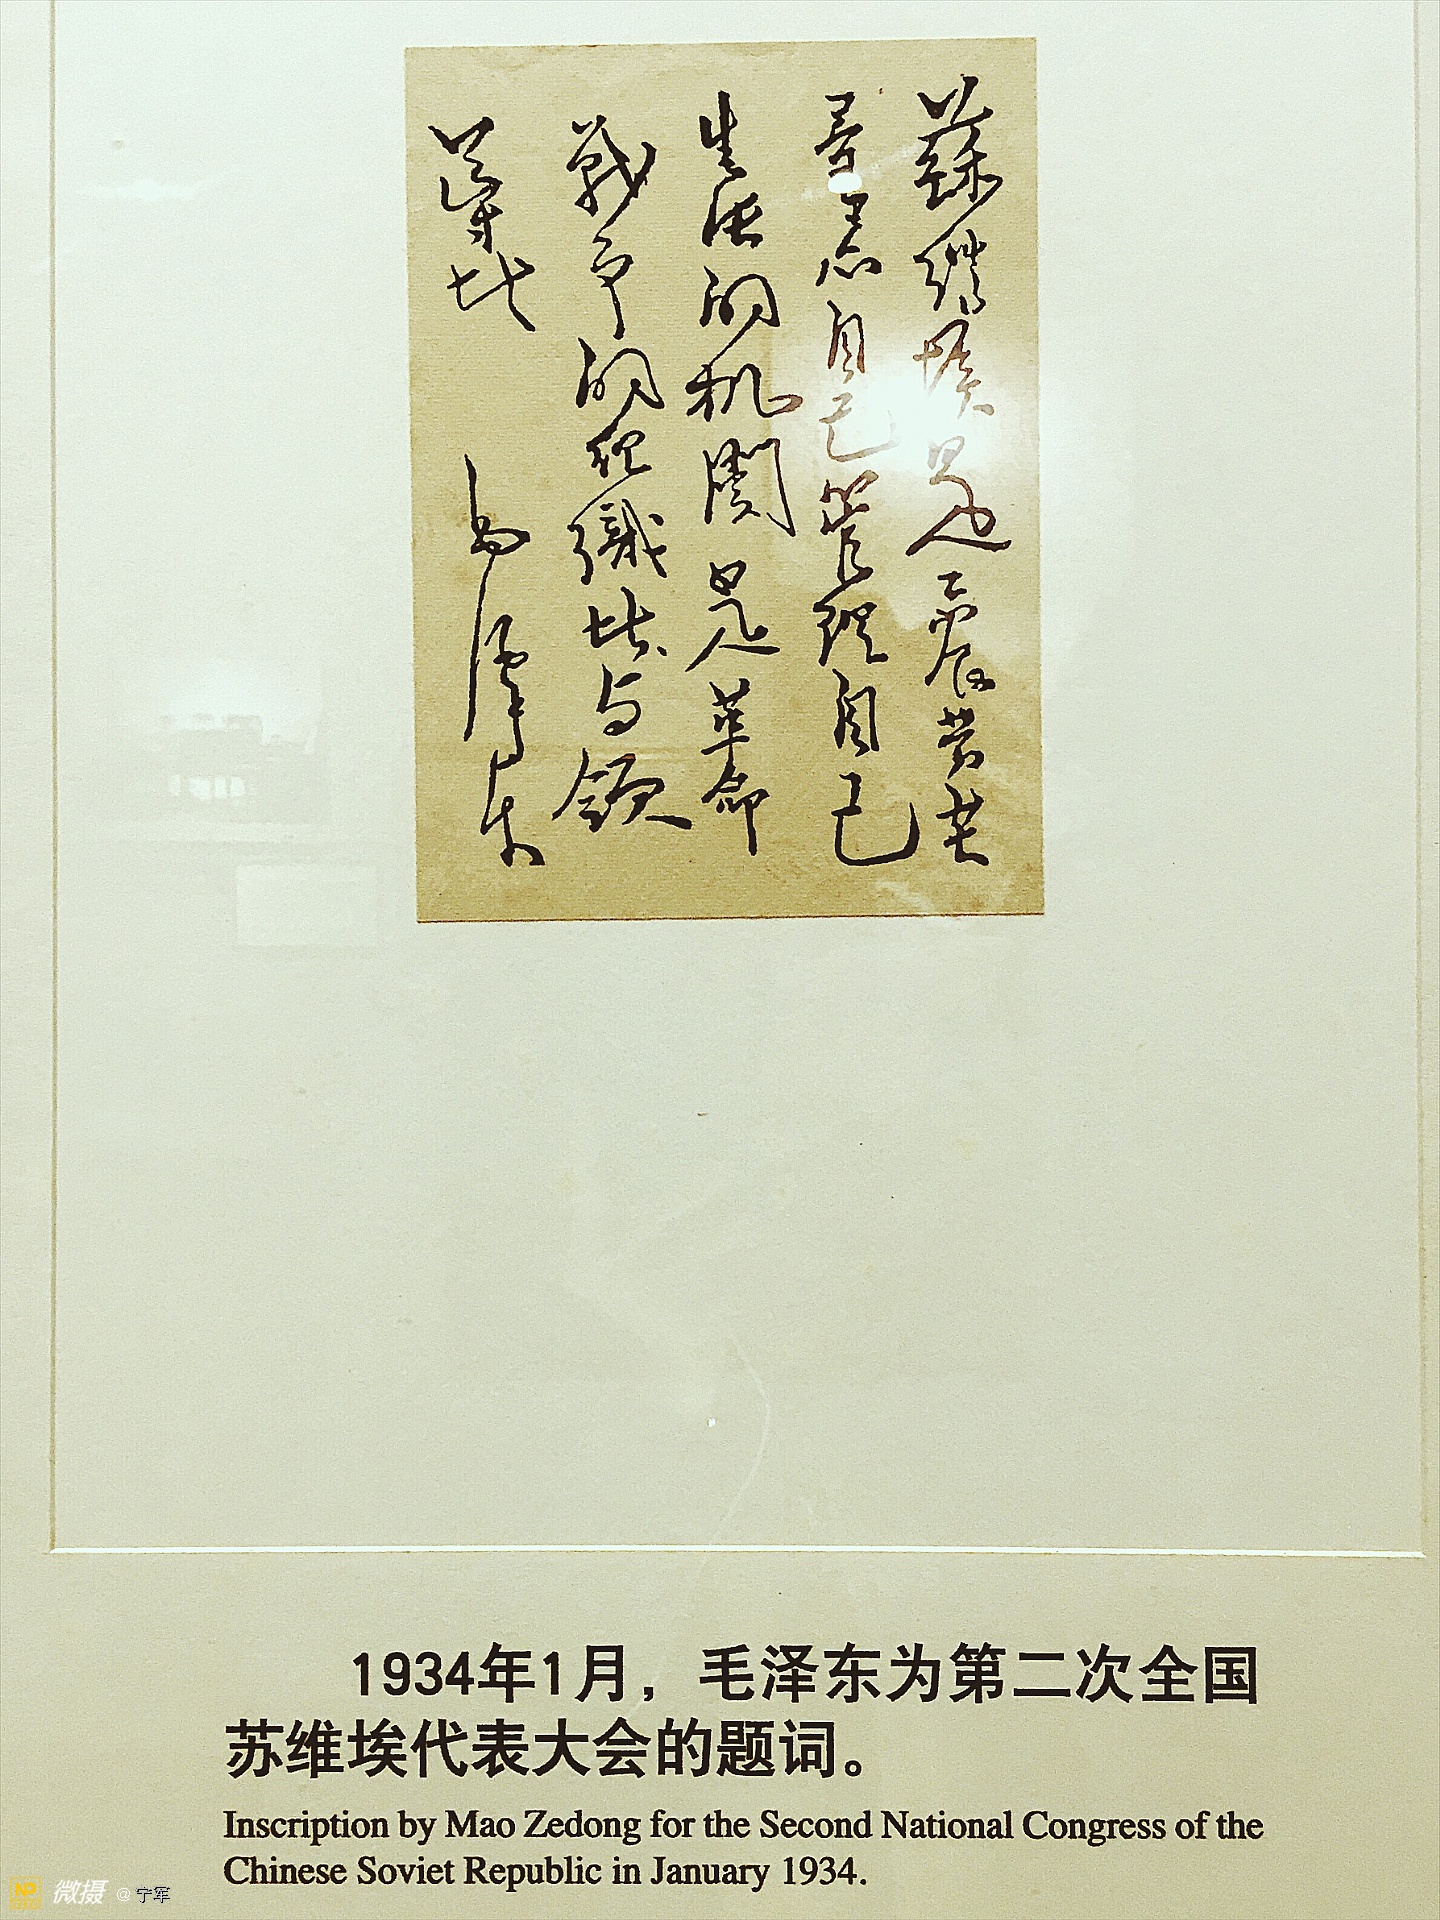 蘇維埃是工農劳苦
羣衆自己管理自己
生活的机關是革命
戰争的組織者与領
導者 毛澤东
1934年1月，毛泽东为第二次全国
苏维埃代表大会的题词。
Inscription by Mao Zedong for the Second National Congress of the
Chinese Soviet Republic in January 1934.
NP 微摄 @宁军